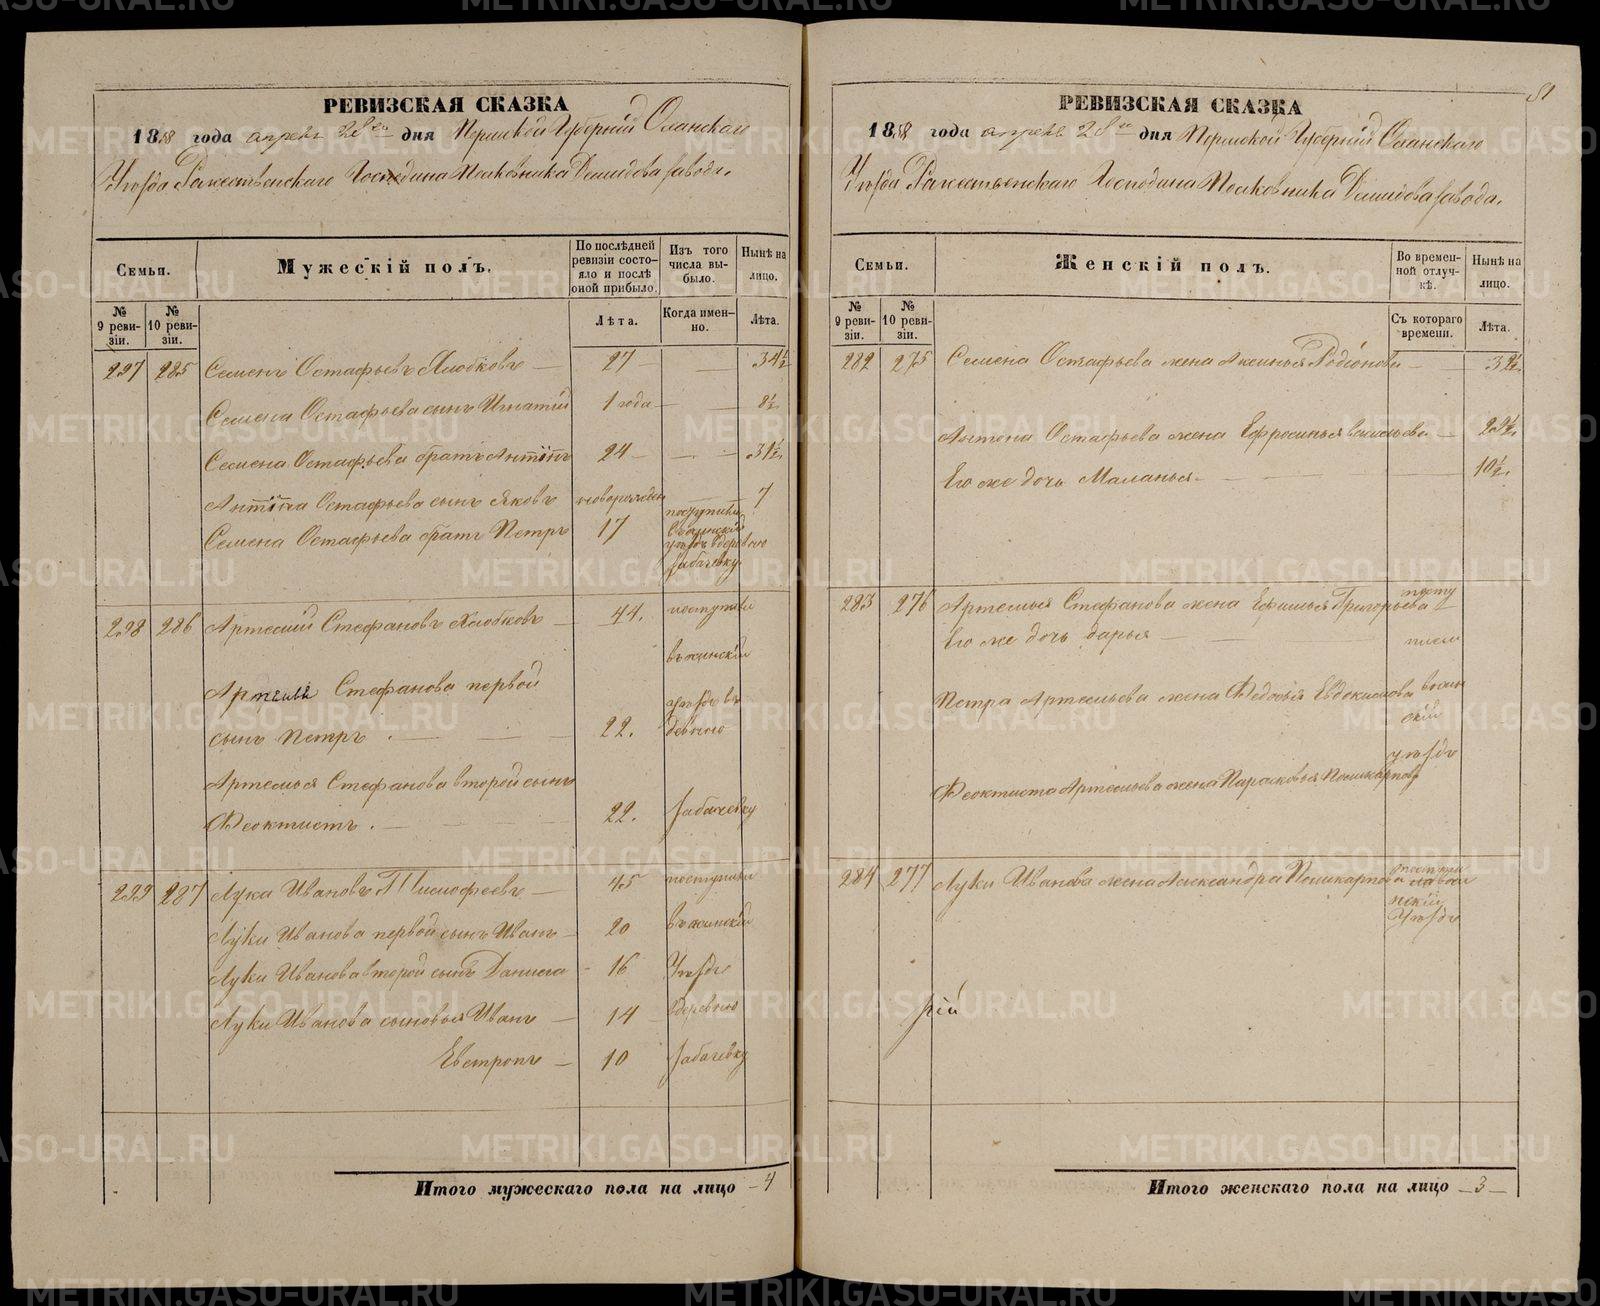 РЕВИЗСКАЯ СКАЗКА
1858 года апреля 28го дня Пермской Губернiи Оханскаго
Уѣзда Ражественскаго Господина Полковника Демидова завода.
Семьи.
Мужескiй полъ.
По послѣдней ревизiи состояло и послѣ оной прибыло.
Изъ того числа выбыло.
Нынѣ на лицо.
№ 9 ревизiи.
№ 10 ревизiи.
Лѣта.
Когда именно.
Лѣта.
297 285 Семенъ Остафьевъ — 27 — — 34½
Семена Остафьева сынъ Игнатiй 1 года — — 8½
Семена Остафьева братъ Антонъ 24 — — 31½
Антона Остафьева сынъ Яковъ новорожден — 7
Семена Остафьева братъ Петръ 17 поступили
уѣздъ вдеревню
298 286 Артемiй Стефановъ — 44. поступили
Артемья Стефанова первой
уѣздъ въ
сынъ Петръ . — — — 22. девѣню
Артемья Стефанова второй сынъ
Феоктистъ . — — — 22.
299 287 Лука Ивановъ Тимофеевъ — 45 поступили
Луки Иванова первой сынъ Иванъ — 20
Луки Иванова второй сынъ Данила - 16 Уѣздъ
Луки Иванова сыновья Иванъ — 14 вдеревню
Евстропъ — 10
Итого мужескаго пола на лицо — 4
81
РЕВИЗСКАЯ СКАЗКА
1858 года апреля 28го дня Пермской Губернiи Оханскаго
Уѣзда Ражественскаго Господина Полковника Демидова завода.
Семьи.
Женскiй полъ.
Во временной отлучкѣ.
Нынѣ на лицо.
№ 9 ревизiи.
№ 10 ревизiи.
Съ котораго времени.
Лѣта.
282 275 Семена Остафьева жена Аксинья Родiонова — —
Антона Остафьева жена Ефросинья —
Его же дочь Маланья — — — 10½
283 276 Артемья Стефанова жена Ефимья Григорьева посту
Его же дочь Дарья — — пили
Петра Артемьева жена Федосья Евдокимова
скiй
уѣздъ
Феоктиста Артемьева жена Парасковья Поликарпова
284 277 Луки Иванова жена Александра Поликарпова
нскiй
Уѣздъ
рiй
Итого женскаго пола на лицо — 3 —
METRIKI.GASO-URAL.RU